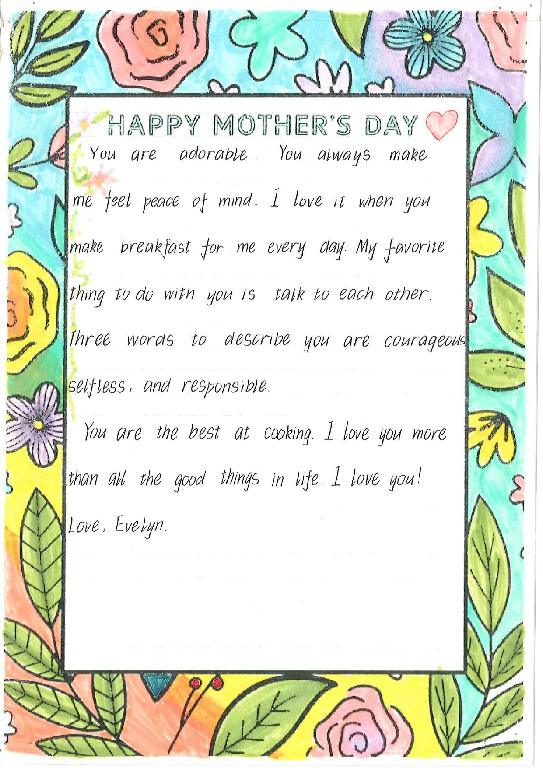 HAPPY MOTHER'S DAY
You are adorable. You always make
me feel peace of mind. I love it when you
make breakfast for me every day. My favorite
thing to do with you is talk to each other.
Three words to describe you are courageous
selfless, and responsible.
You are the best at cooking. I love you more
than all the good things in life. I love you!
Love, Evelyn.